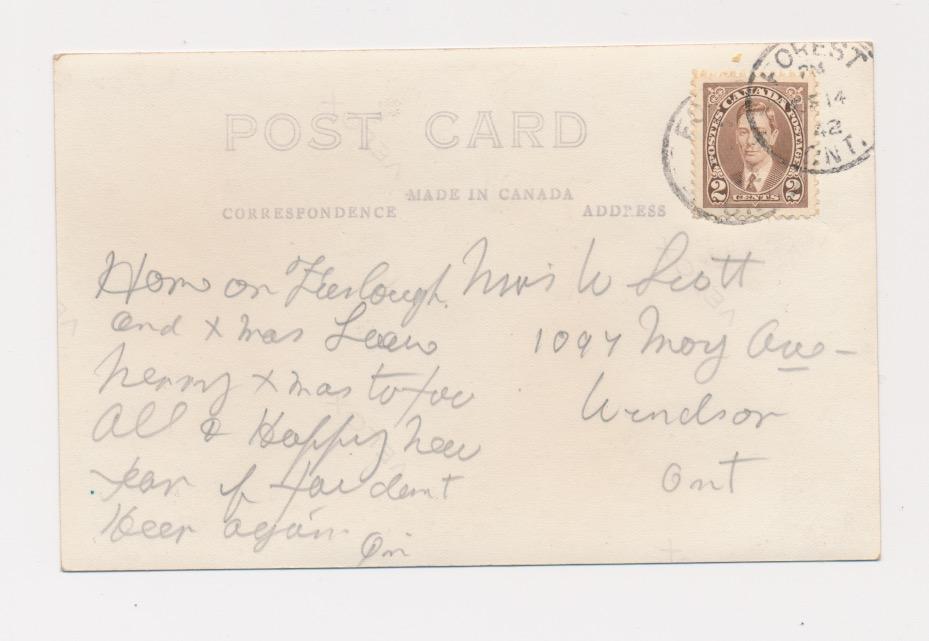 POST CARD
MADE IN CANADA
CORRESPONDENCE
ADDRESS
CANADA
POSTES POSTAGE
2 CENTS 2
FOREST
PM
14
42
ONT.
Home on Furlough
and Xmas Leave
Merry Xmas to you
All & Happy New
Year if you dont
Heer again
Mrs W Scott
1094 Moy Ave
Windsor
Ont